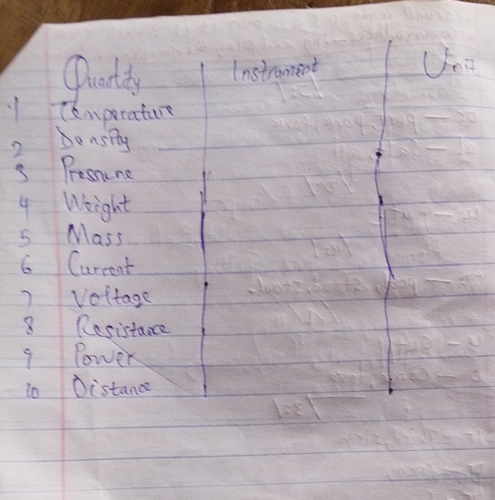 Quantity Instrument Unit
1 Temperature
2 Density
3 Pressure
4 Weight
5 Mass
6 Current
7 Voltage
8 Resistance
9 Power
10 Distance